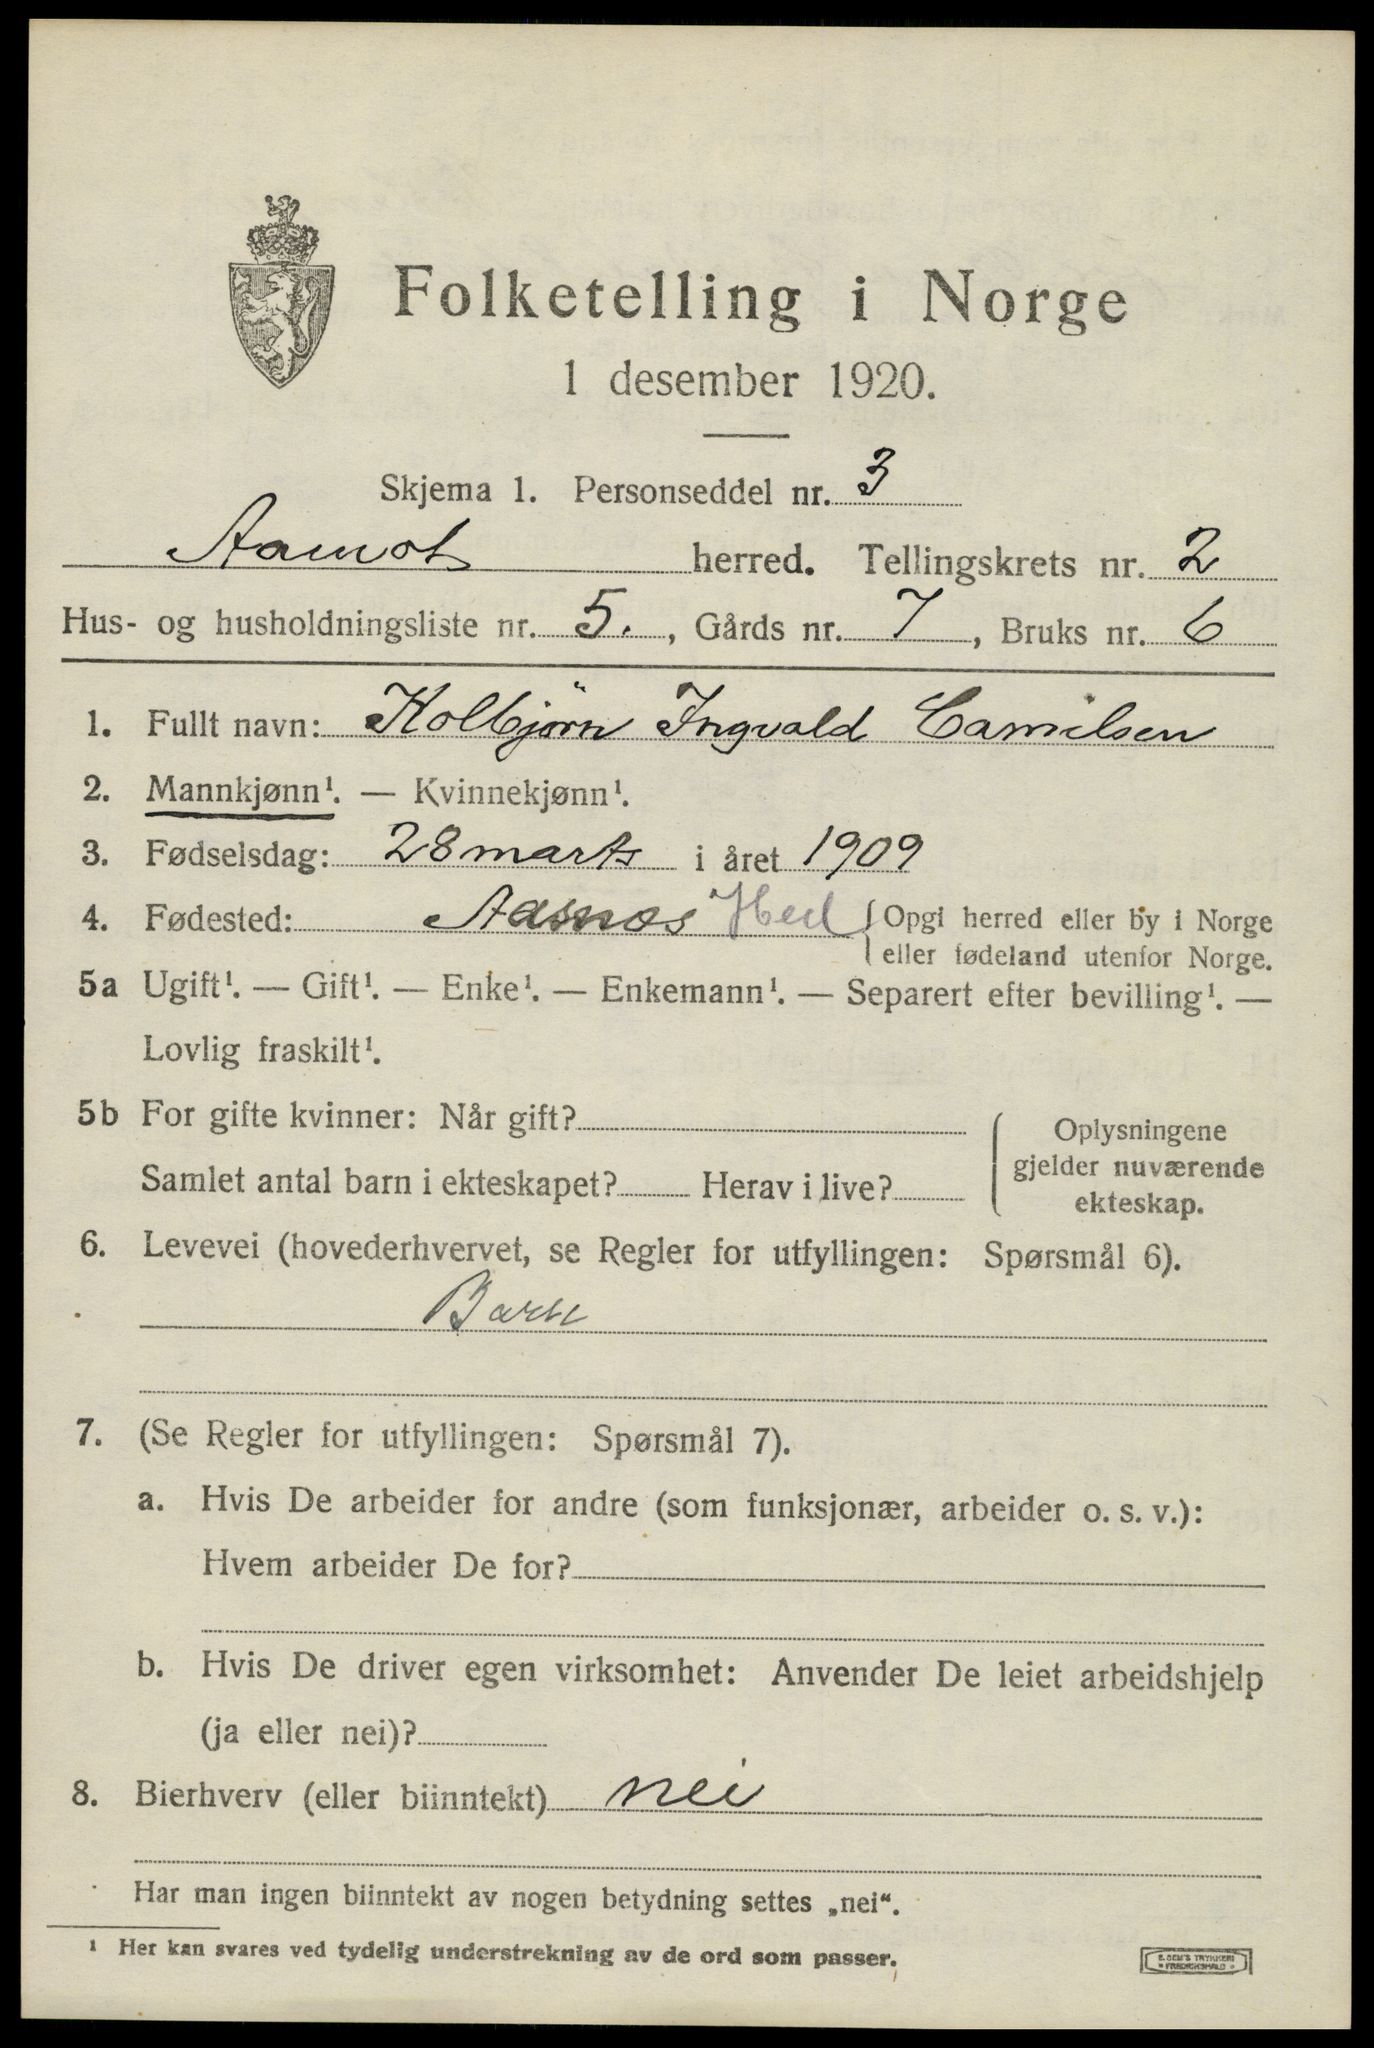 Folketelling i Norge
1 desember 1920.
Skjema 1. Personseddel nr. 3
Aamot herred. Tellingskrets nr. 2
Hus- og husholdningsliste nr. 5. , Gårds nr. 7 , Bruks nr. 6
1. Fullt navn: Kolbjörn Ingvald Camilsen
2. Mannkjønn¹. — Kvinnekjønn¹.
3. Fødselsdag: 28 marts i året 1909
4. Fødested: Aasnes Hed { Opgi herred eller by i Norge
eller fødeland utenfor Norge.
5a Ugift¹. — Gift¹. — Enke¹. — Enkemann¹. — Separert efter bevilling¹. —
Lovlig fraskilt¹.
5b For gifte kvinner: Når gift?
Samlet antal barn i ekteskapet? Herav i live?
Oplysningene
gjelder nuværende
ekteskap.
6. Levevei (hovederhvervet, se Regler for utfyllingen: Spørsmål 6).
Barn
7. (Se Regler for utfyllingen: Spørsmål 7).
a. Hvis De arbeider for andre (som funksjonær, arbeider o. s. v.):
Hvem arbeider De for?
b. Hvis De driver egen virksomhet: Anvender De leiet arbeidshjelp
(ja eller nei)?
8. Bierhverv (eller biinntekt) nei
Har man ingen biinntekt av nogen betydning settes „nei“.
¹ Her kan svares ved tydelig understrekning av de ord som passer.
E. SEM'S TRYKKERI
• FREDRIKSHALD •